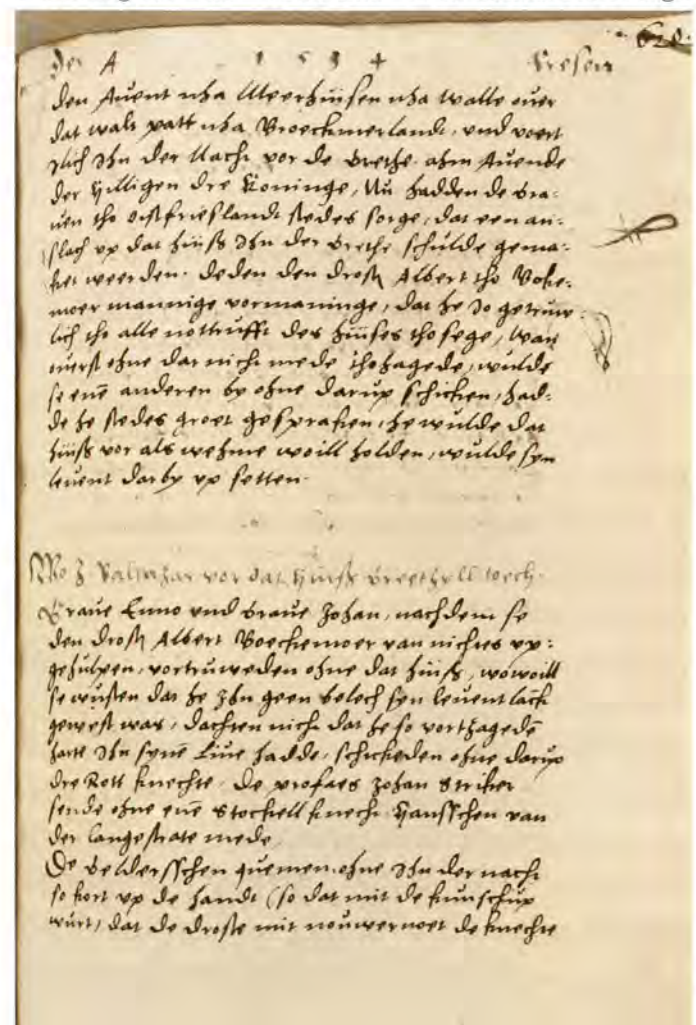 628.
Der A 1 5 3 4 Fresen
den Auent nha Meerhusen nha Walle ouer
dat walt patt nha Broeckmerlandt, und voert
Jlich Jhn der Nacht vor de Grethe ahm Auende
der Hilligen dre Koninge, Nu hadden de Gra-
uen tho oistfrieslandt stedes sorge, dat een an-
slach up dat huiss Jhn der Grethe schulde gema-
ket weerden. deden den drost Albert tho Boke-
moer mannige vormaninge, dat he Jo getruw-
lich tho alle nottrufft des huises tho sege, Wan
auerst ohne dar nicht mede thohagede, wulde
se ene anderen by ohne darup schicken, had-
de he stedes groet gespraken, he wulde dat
huiss vor als wehme woill holden, wulde syn
leuent darby up setten.
Wo J. Baltazar vor dat Huiss Greethsell toech.
Graue Enno und Graue Johan, nachdem se
den drost Albert Boeckemoer van nichtes up-
gehulpen, vortruweden ohne dat huiss, wowoill
se wusten dat he Jhn geen belech syn leuent lack
gewest war, dachten nicht dat he so vorthagede
harte Jhn syne Liue hadde, schickeden ohne darup
dre Rott knechte. De profaes Johan Striker
sende ohne ene Stockell knecht Hansschen van
der langestrate mede
De Geldersschen quemen ohne Jhn der nacht
so kort up de handt (so dat mit de kunschup
wurt, dat de droste mit nouwer noet de knechte